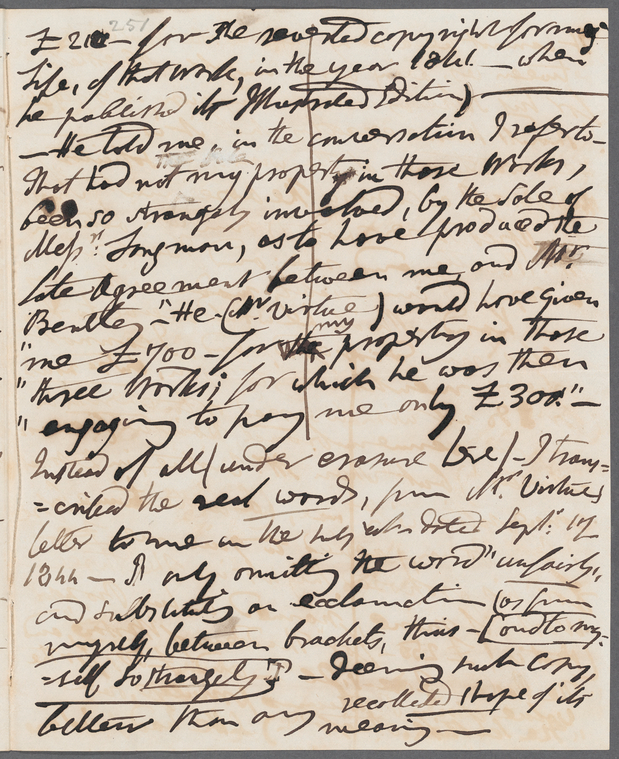 251
£210 – for the reverted copyright for my
life, of that work, in the year 1841 – when
he published its Illustrated Edition)
– He told me, in the conversation I refer to –
that had not my property in those Works,
been so strangely involved, by the Sale of
Messrs. Longman, as to have produced the
late Agreement between me and Mr.
Bentley – "He (Mr. Virtue) would have given
my
"me £700 – for property in those
"three Works; for which he was then
"engaging to pay me only £300." –
Instead of all (under erasure here) – I trans=
=cribed the real words, from Mr. Virtue's
letter to me on the subject dated Sept. 17
1844 – only omitting the word "unfairly,
and substituting an exclamation (as from
myself, between brackets, thus – [and to my=
=self so strangely!] – deeming such copy,
better than any recollected shape of its
meaning –